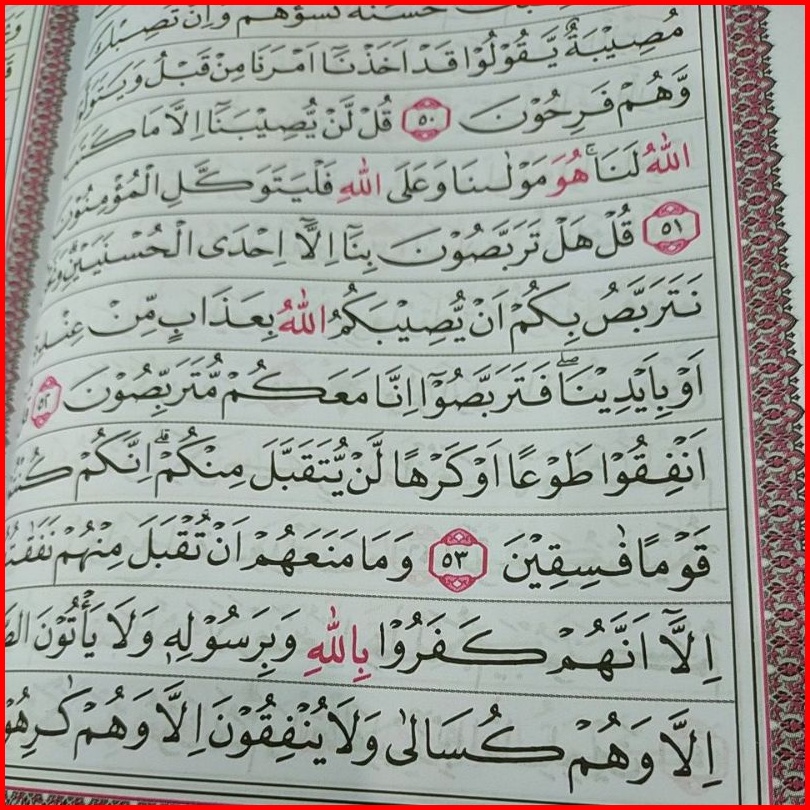 حَسَنَةٌ تَسُؤْهُمْ وَاِنْ تُصِبْكَ
مُصِيْبَةٌ يَّقُوْلُوْا قَدْ اَخَذْنَآ اَمْرَنَا مِنْ قَبْلُ وَيَتَوَلَّوْا
وَّهُمْ فَرِحُوْنَ ٥٠ قُلْ لَّنْ يُّصِيْبَنَآ اِلَّا مَا كَتَبَ
اللّٰهُ لَنَاۚ هُوَ مَوْلٰىنَا وَعَلَى اللّٰهِ فَلْيَتَوَكَّلِ الْمُؤْمِنُوْنَ
٥١ قُلْ هَلْ تَرَبَّصُوْنَ بِنَآ اِلَّآ اِحْدَى الْحُسْنَيَيْنِۗ
نَتَرَبَّصُ بِكُمْ اَنْ يُّصِيْبَكُمُ اللّٰهُ بِعَذَابٍ مِّنْ
اَوْ بِاَيْدِيْنَاۖ فَتَرَبَّصُوْٓا اِنَّا مَعَكُمْ مُّتَرَبِّصُوْنَ ٥٢
اَنْفِقُوْا طَوْعًا اَوْ كَرْهًا لَّنْ يُّتَقَبَّلَ مِنْكُمْۗ اِنَّكُمْ
قَوْمًا فٰسِقِيْنَ ٥٣ وَمَا مَنَعَهُمْ اَنْ تُقْبَلَ مِنْهُمْ
اِلَّآ اَنَّهُمْ كَفَرُوْا بِاللّٰهِ وَبِرَسُوْلِهٖ وَلَا يَأْتُوْنَ
اِلَّا وَهُمْ كُسَالٰى وَلَا يُنْفِقُوْنَ اِلَّا وَهُمْ